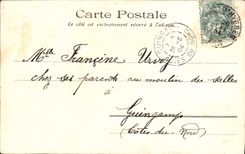 Carte Postale
Ce côté est exclusivement réservé à l'adresse
Mlle Francine Urvoy
chez ses parents au moulin des salles
à
Guingamp
(Côtes du Nord)